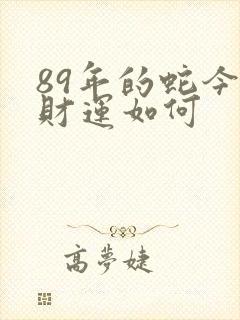 89年的蛇今
財運如何
高夢婕